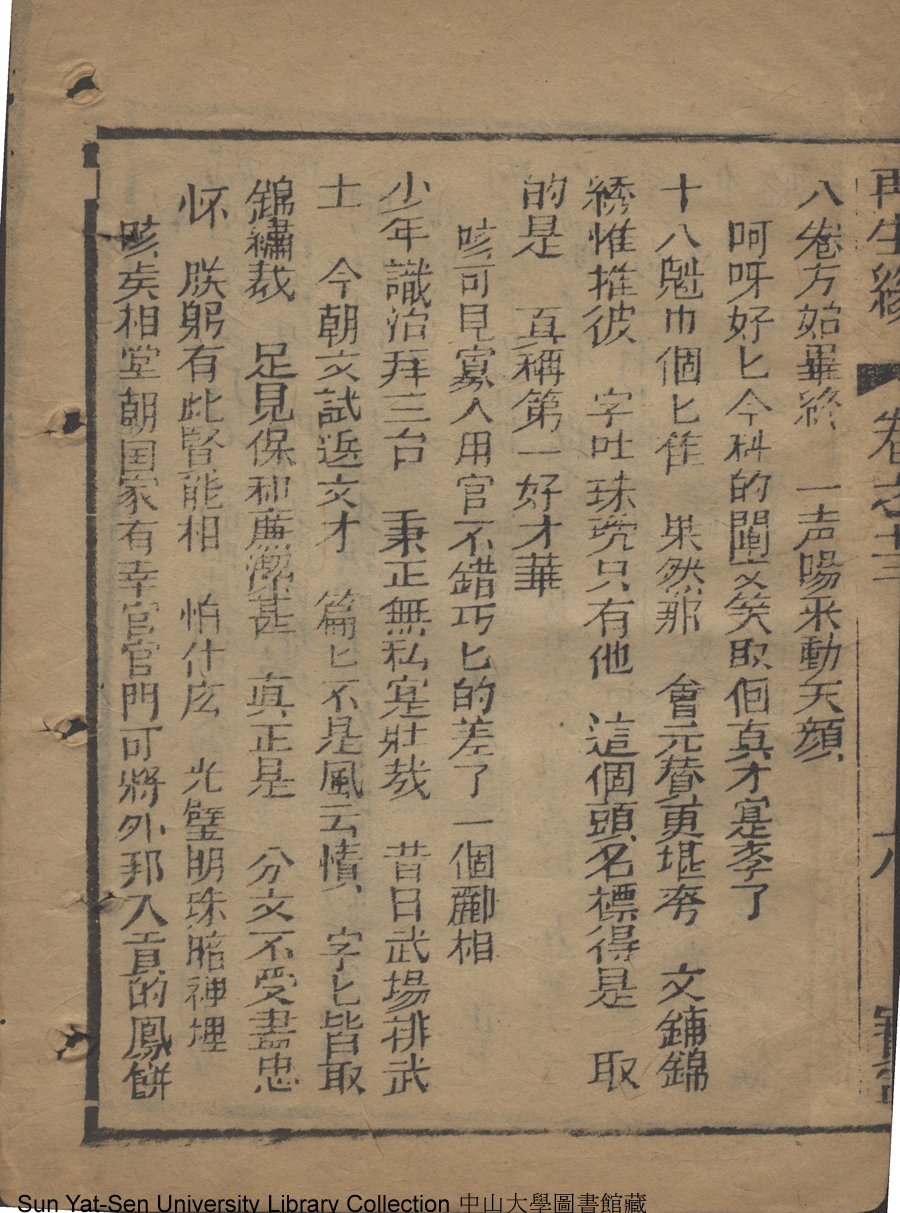 再生緣 卷之十三
八卷方始畢終 一声喝采動天顔
呵呀好匕今科的闈文笑取個真才寔孝了
十八魁巾個匕隹 果然那 會元賛更堪夸 文鋪錦
綉惟推彼 字吐珠玑只有他 這個頭名標得是 取
的是 真稱第一好才華
咳可見寡人用官不錯巧匕的差了一個酈相
少年識治拜三台 秉正無私寔壯哉 昔日武場排武
士 今朝文試返文才 篇匕不是風云憤 字匕皆取
錦繡裁 足見保和廉潔甚 真正是 分文不受盡忠
怀 朕躬有此賢能相 怕什庅 光璧明珠暗神埋
咳矣相堂朝国家有幸官官門可將外邦入貢的鳳餅
Sun Yat-Sen University Library Collection 中山大學圖書館藏